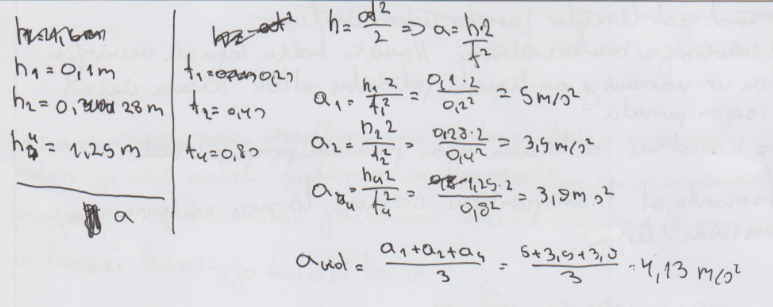 h₁ = 0,1 m
h₂ = 0,28 m
h₄ = 1,25 m
a
t₁ = 0,2s
t₂ = 0,4s
t₄ = 0,8s
h = at²/2 => a = h2/t²
a₁ = h₁2/t₁² = 0,1·2/0,2² = 5 m/s²
a₂ = h₂2/t₂² = 0,28·2/0,4² = 3,5 m/s²
a₄ = h₄2/t₄² = 1,25·2/0,8² = 3,9 m/s²
a vid = a₁+a₂+a₄/3 = 5+3,5+3,9/3 = 4,13 m/s²